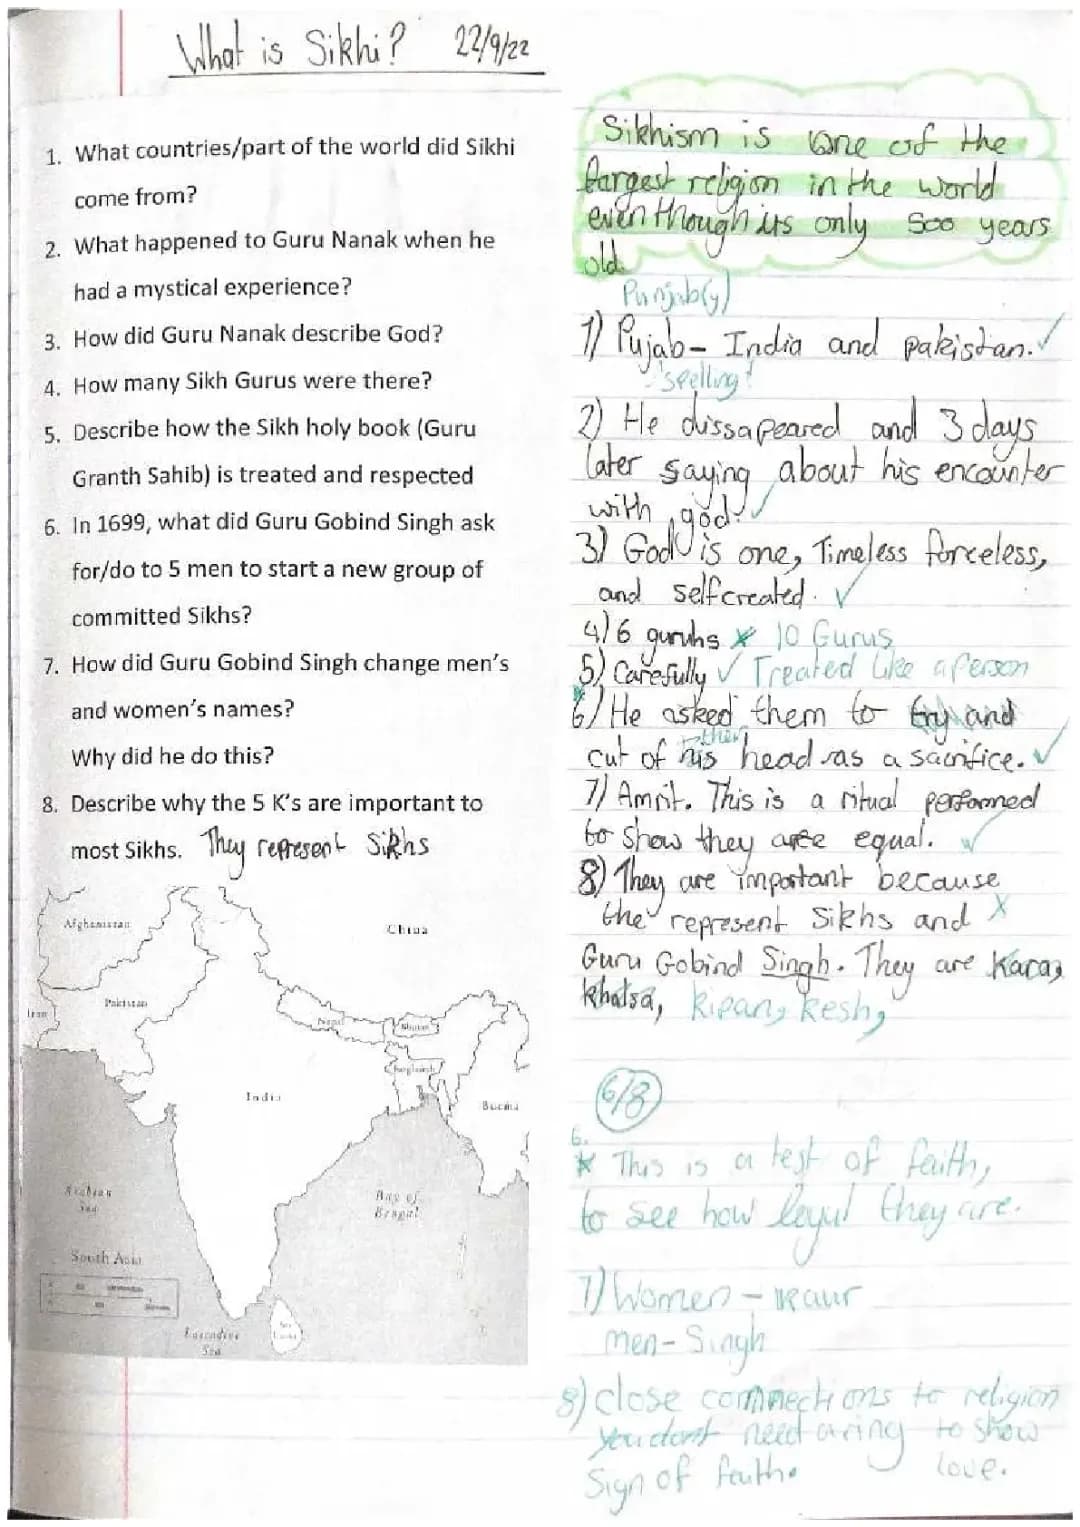 What is Sikhi? 22/9/22
1. What countries/part of the world did Sikhi
come from?
2. What happened to Guru Nanak when he
had a mystical experience?
3. How did Guru Nanak describe God?
4. How many Sikh Gurus were there?
5. Describe how the Sikh holy book (Guru
Granth Sahib) is treated and respected
6. In 1699, what did Guru Gobind Singh ask
for/do to 5 men to start a new group of
committed Sikhs?
7. How did Guru Gobind Singh change men's
and women's names?
Why did he do this?
8. Describe why the 5 K's are important to
most Sikhs. They represent Sikhs
Afghanistan
China
Pakistan
Iran
Nepal
Bhutan
Bangladesh
India
Burma
Arabian
Sea
Bay of
Bengal
South Asia
Laccadive
Sea
Sri
Lanka
Sikhism is one of the
largest religion in the world
even though its only 500 years
old.
Punjab(y)
1) Pujab- India and pakistan. ✓
spelling!
2) He dissapeared and 3 days
later saying about his encounter
with god. ✓
3) God is one, Timeless forceless,
and selfcreated. ✓
4) 6 guruhs x 10 Gurus
5) Carefully ✓ Treated like a person
* 6) He asked them to try and
cut of his their head as a sacrifice. ✓
7) Amrit. This is a ritual performed
to show they are equal. ✓
8) They are important because
the represent Sikhs and x
Guru Gobind Singh. They are Kara,
khalsa, kipan, kesh,
6/8
6.
* This is a test of faith,
to see how loyul they are.
7) Women - kaur
men- Singh
8) close connections to religion
you dont need a ring to show
Sign of faith. love.